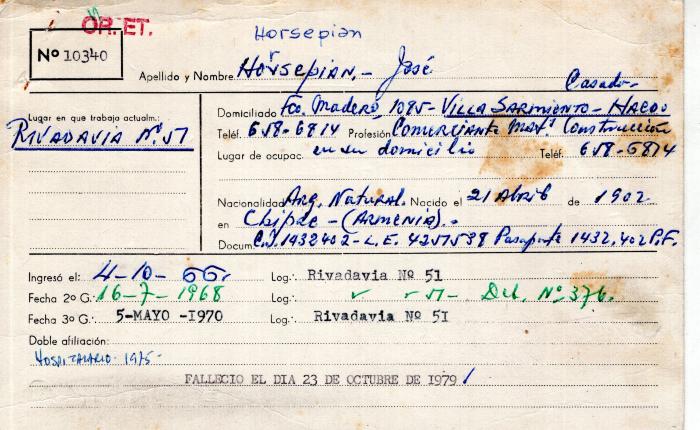 OR. ET.
Horsepian
Nº 10340
Apellido y Nombre Horsepian.- José
Casado-
Lugar en que trabaja actualm.:
RIVADAVIA Nº 51
Domiciliado Fco. Madero, 1085- VILLA SARMIENTO- HAEDO
Teléf. 658-6814 Profesión Comerciante Mat. Construcción
Lugar de ocupac. en su domicilio Teléf. 658-6814
Nacionalidad Arg. Natural. Nacido el 21 Abril de 1902
en Chipre - (ARMENIA).-
Docum. C.I. 1932402-L.E. 4257538 Pasaporte 1432.402 P.F.
Ingresó el: 4-10-66. Log∴ Rivadavia Nº 51
Fecha 2º G∴ 16-7-1968 Log∴ ✓ ✓ 51- Del. Nº 376.
Fecha 3º G∴ 5-MAYO -1970 Log∴ Rivadavia Nº 51
Doble afiliación:
HOSPITALARIO-1975-
FALLECIO EL DIA 23 DE OCTUBRE DE 1979